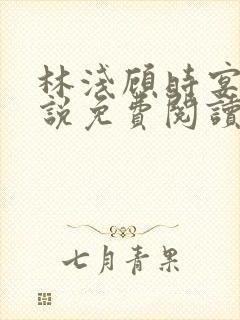 林淺顧時宴
說免費閱讀
七月青果